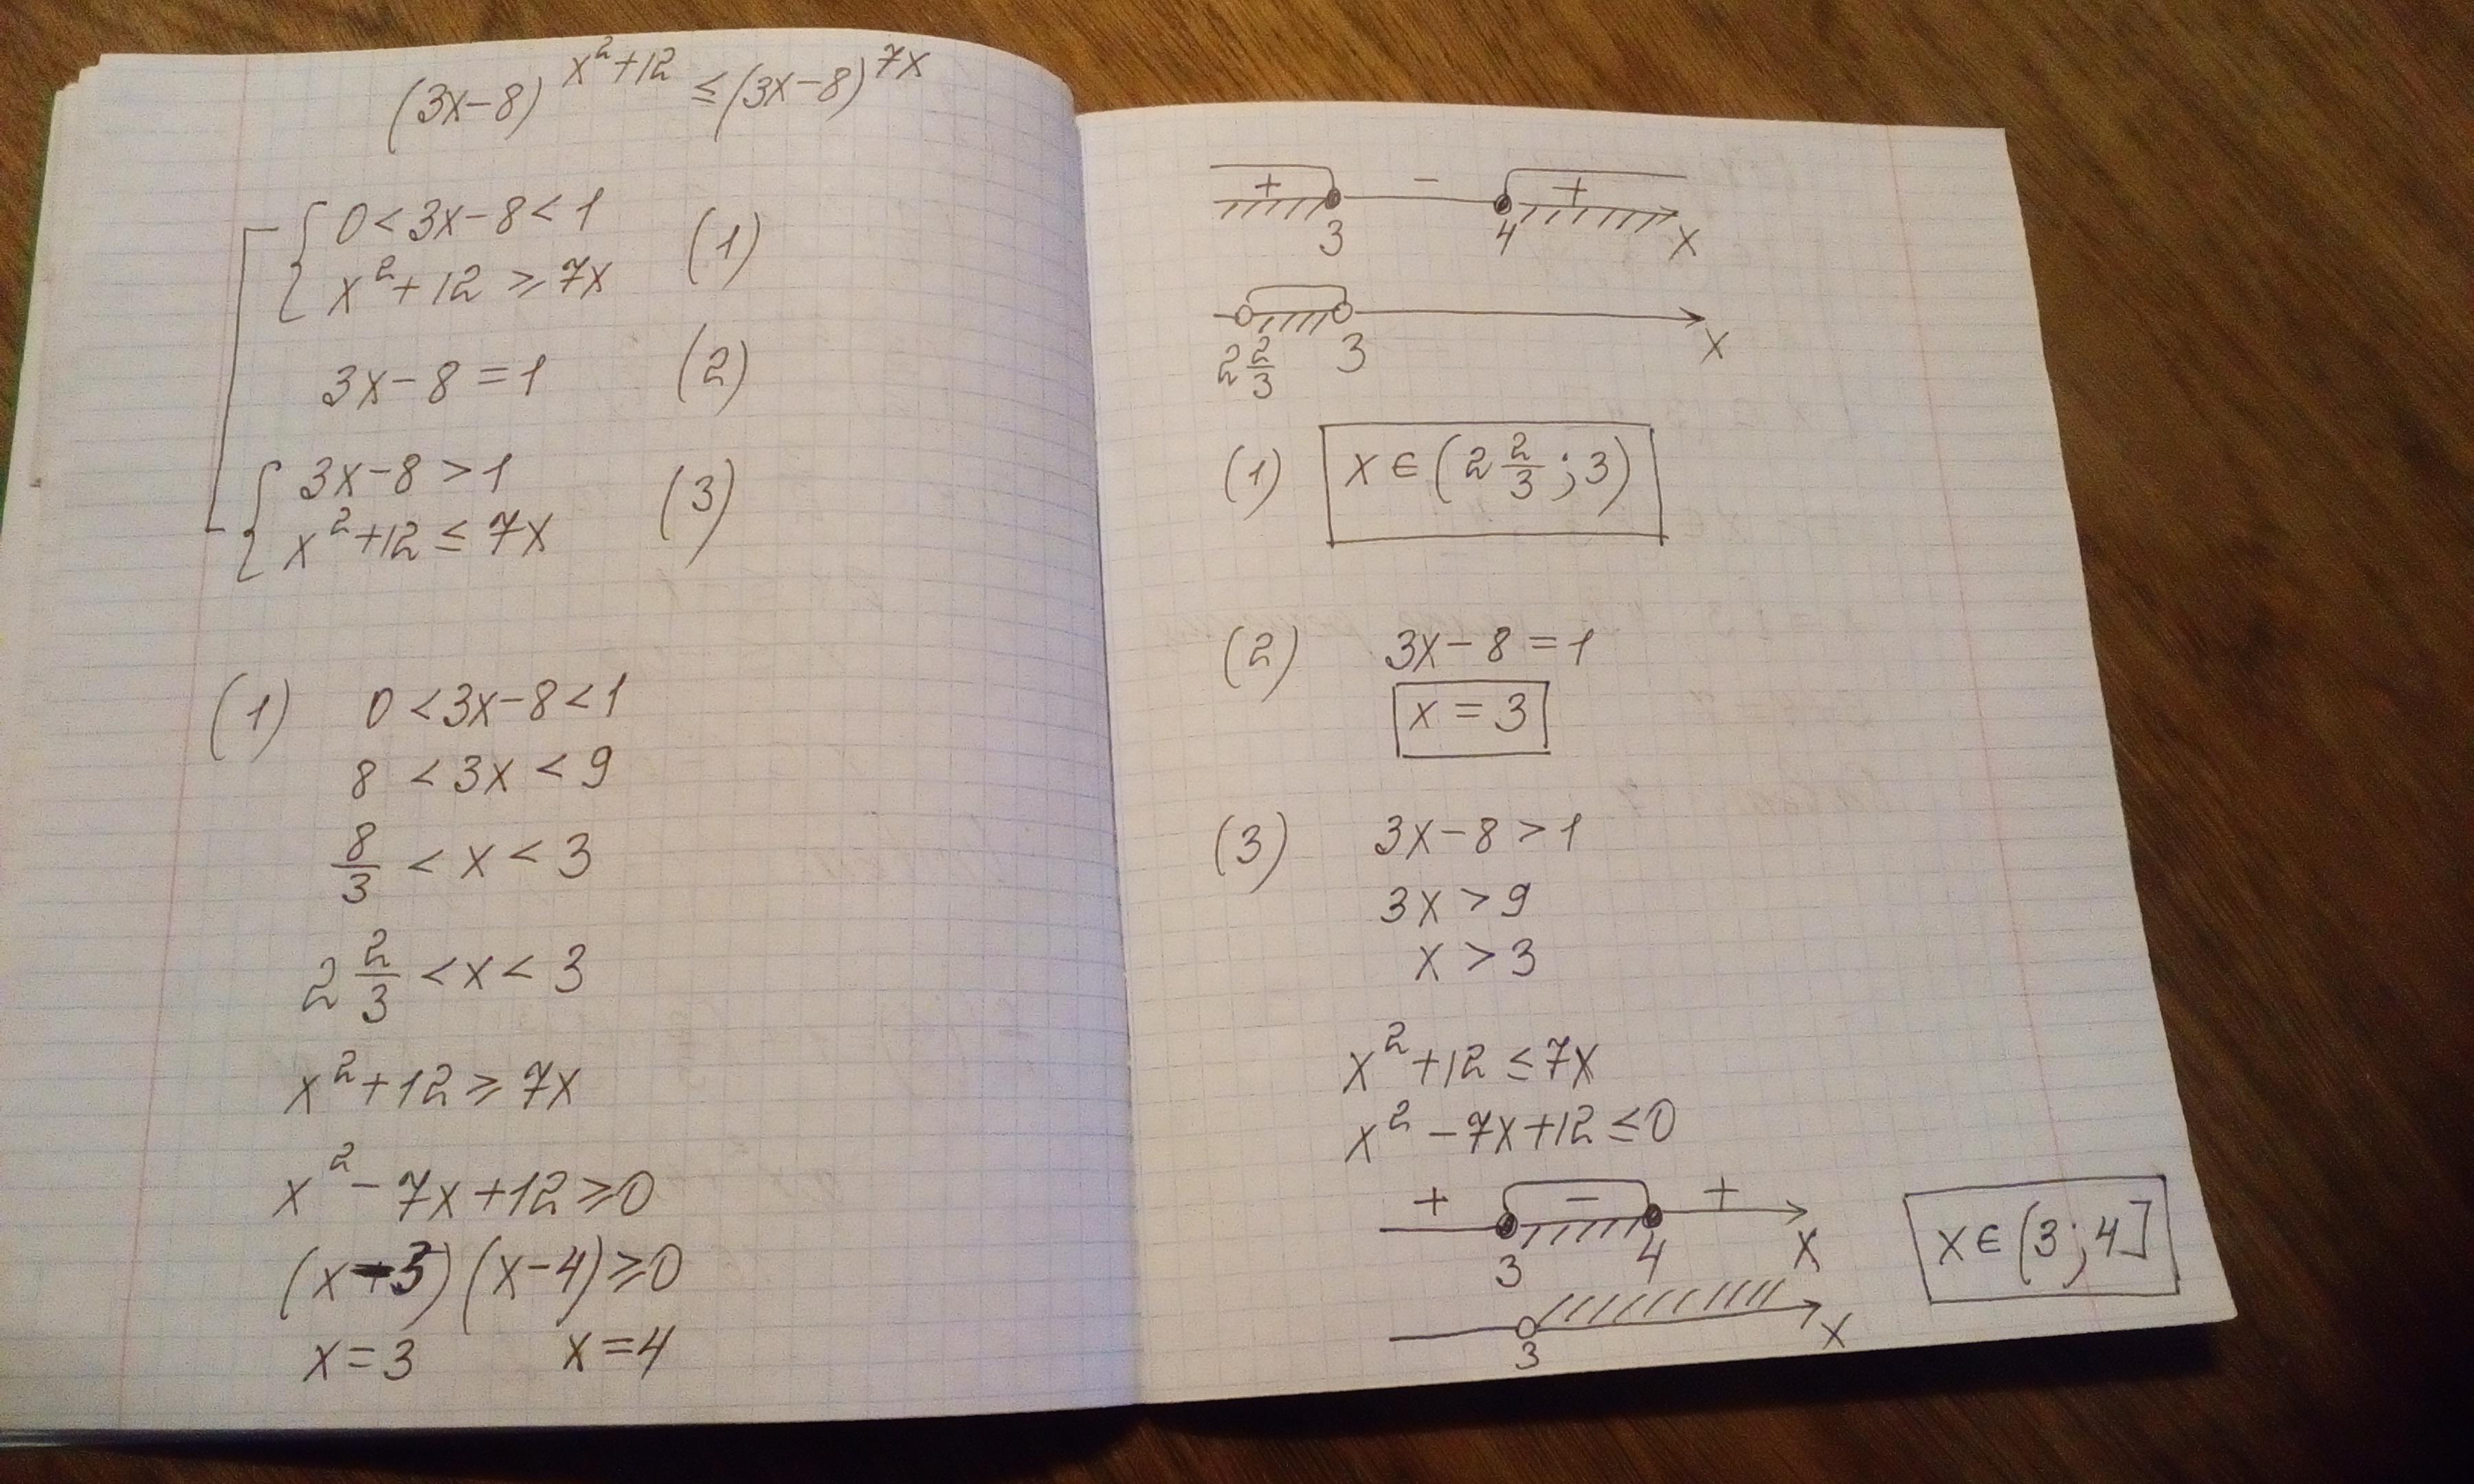 (3x-8)^{x²+12} ≤ (3x-8)^{7x}
0 < 3x-8 < 1
x²+12 ≥ 7x (1)
3x-8 = 1 (2)
3x-8 > 1
x²+12 ≤ 7x (3)
(1) 0 < 3x-8 < 1
8 < 3x < 9
8/3 < x < 3
2 2/3 < x < 3
x²+12 ≥ 7x
x²-7x+12 ≥ 0
(x-3)(x-4) ≥ 0
x=3 x=4
+ - +
3 4 x
2 2/3 3 x
(1) x ∈ (2 2/3 ; 3)
(2) 3x-8 = 1
x = 3
(3) 3x-8 > 1
3x > 9
x > 3
x²+12 ≤ 7x
x²-7x+12 ≤ 0
+ - +
3 4 x
3 x
x ∈ (3 ; 4]